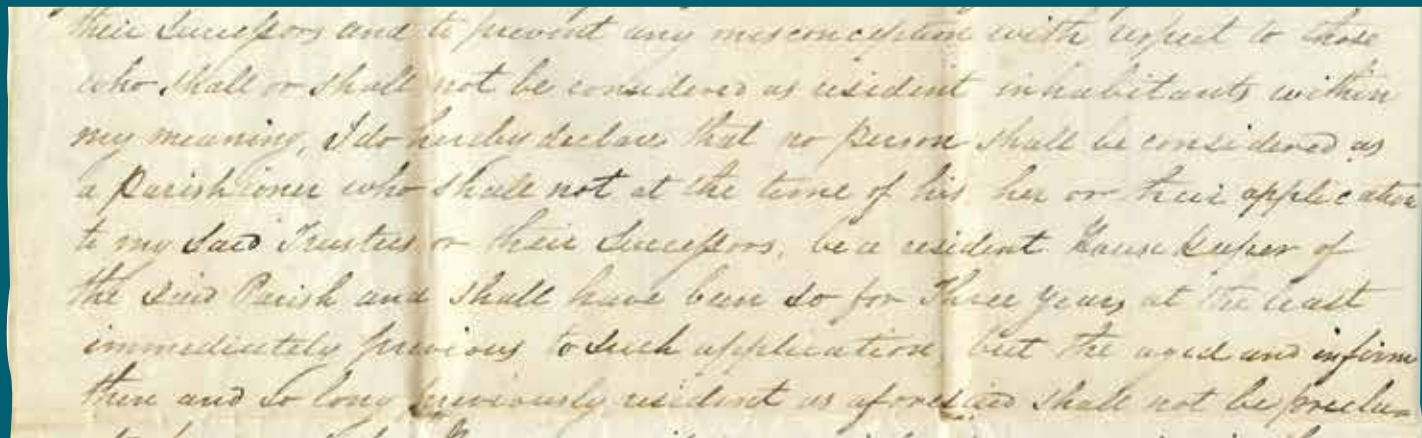 their Successors and to prevent any misconception with respect to those
who shall or shall not be considered as resident inhabitants within
my meaning, I do hereby declare that no person shall be considered as
a Parishioner who shall not at the time of his her or their application
to my said Trustees or their Successors, be a resident Housekeeper of
the said Parish and shall have been so for Three years at the least
immediately previous to such application, but the aged and infirm
there and so long previously resident as aforesaid shall not be preclu=